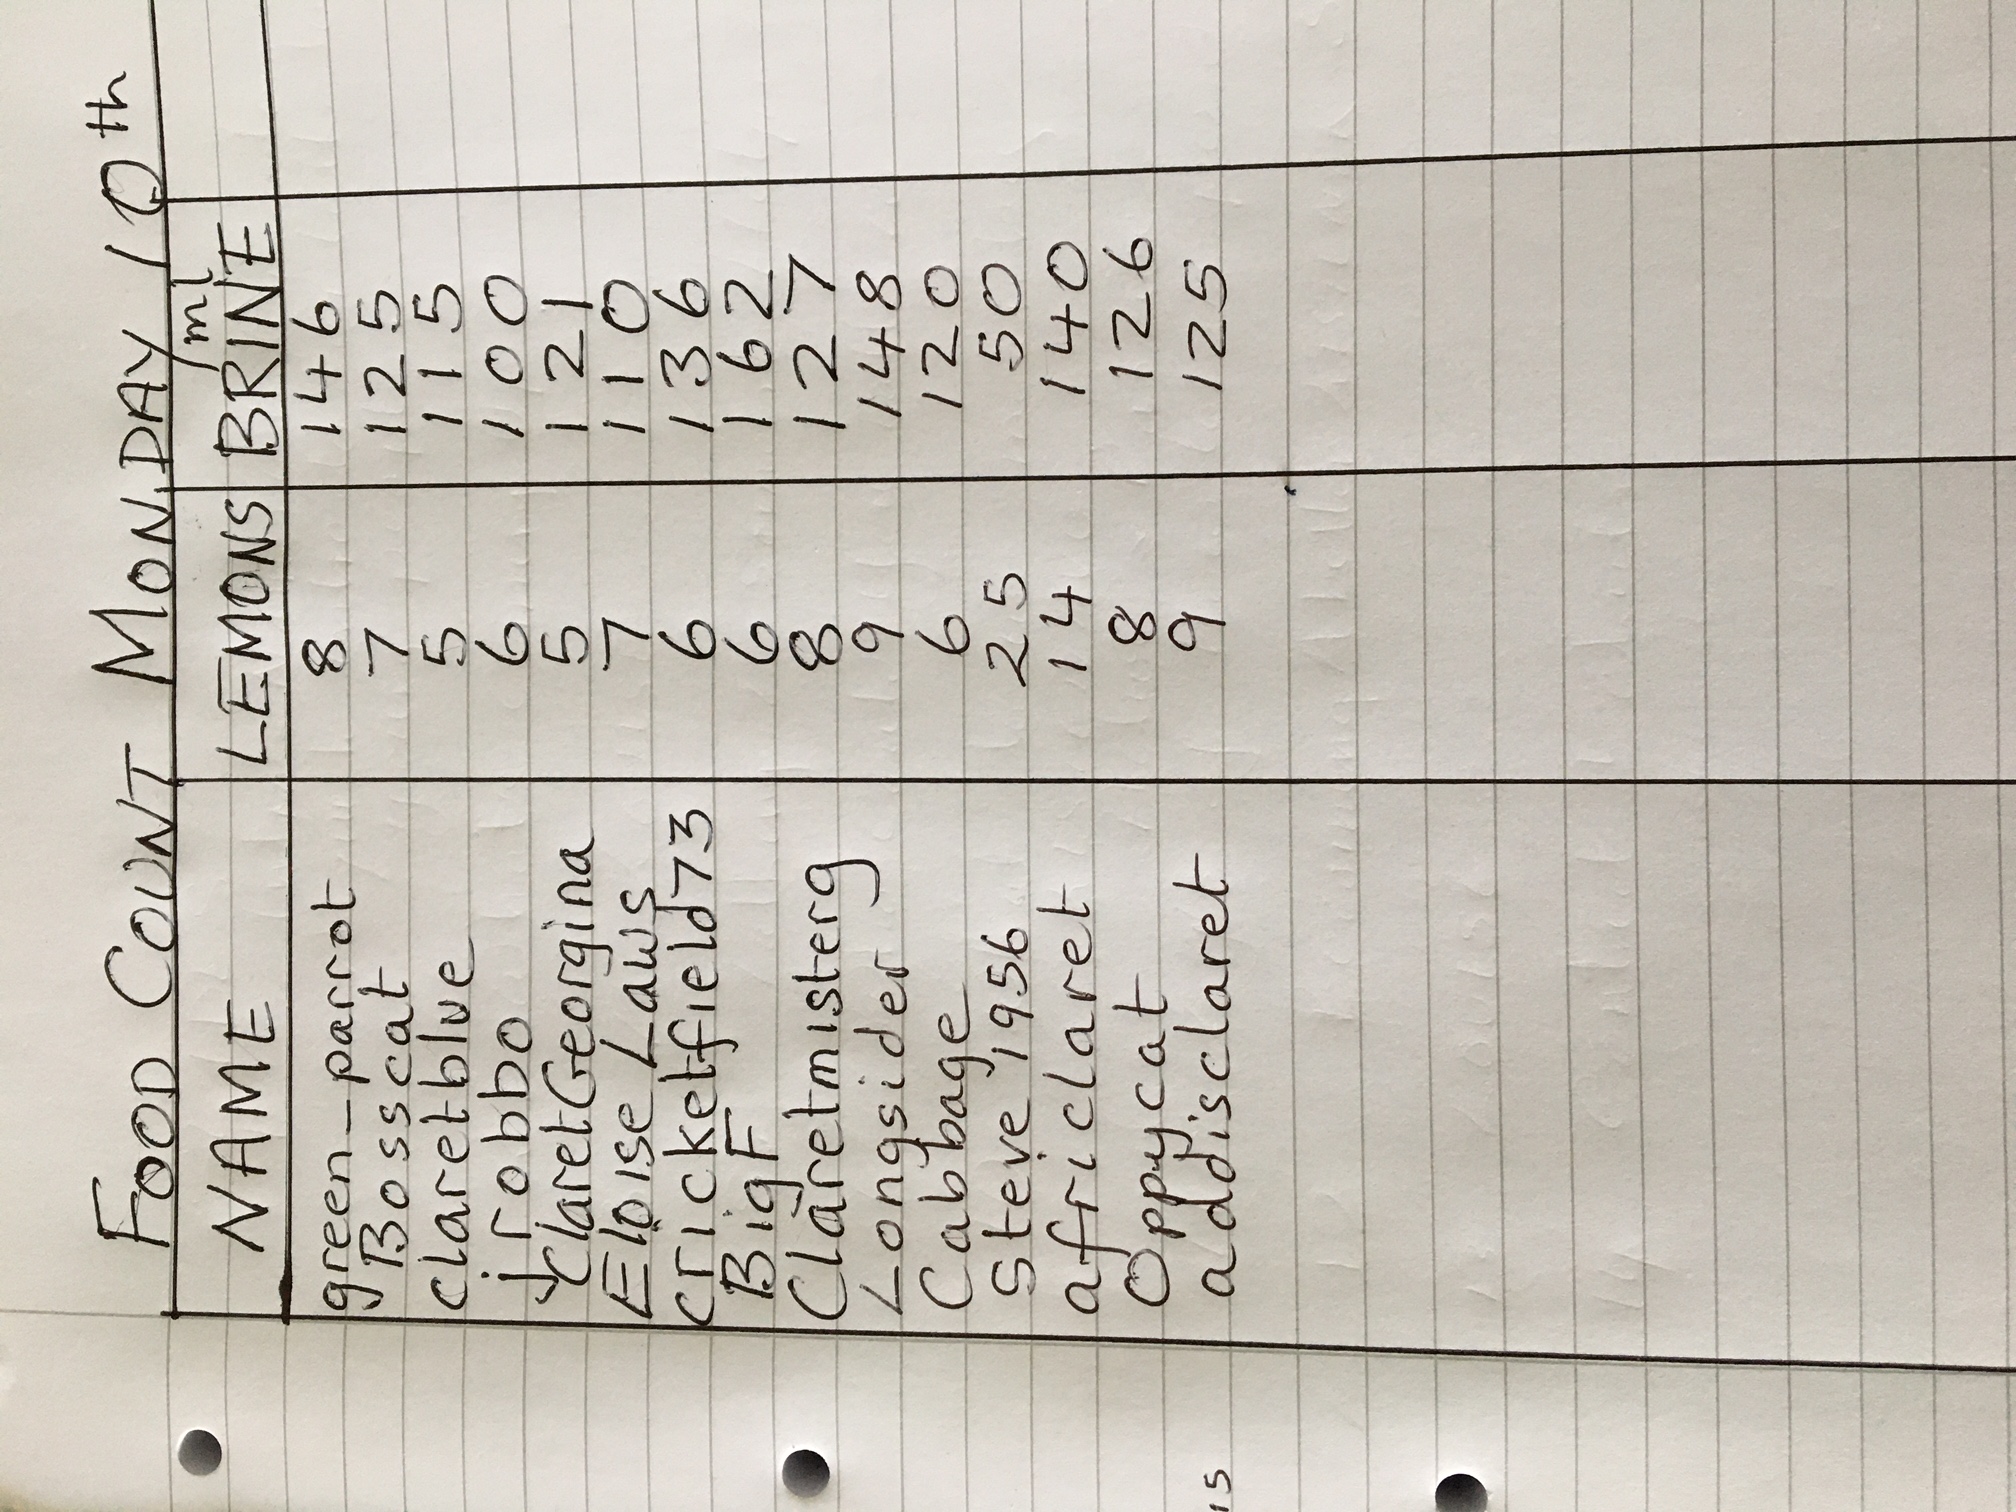 FOOD COUNT MONDAY 10th
NAME LEMONS ml BRINE
green_parrot 8 146
Bosscat 7 125
claretblue 5 115
jrobbo 6 100
ClaretGeorgina 5 121
Eloise Laws 7 110
Cricketfield73 6 136
BigF 6 162
Claretmisterg 8 127
Longsider 9 148
Cabbage 6 120
Steve1956 25 50
africlaret 14 140
Oppycat 8 126
addisclaret 9 125
15